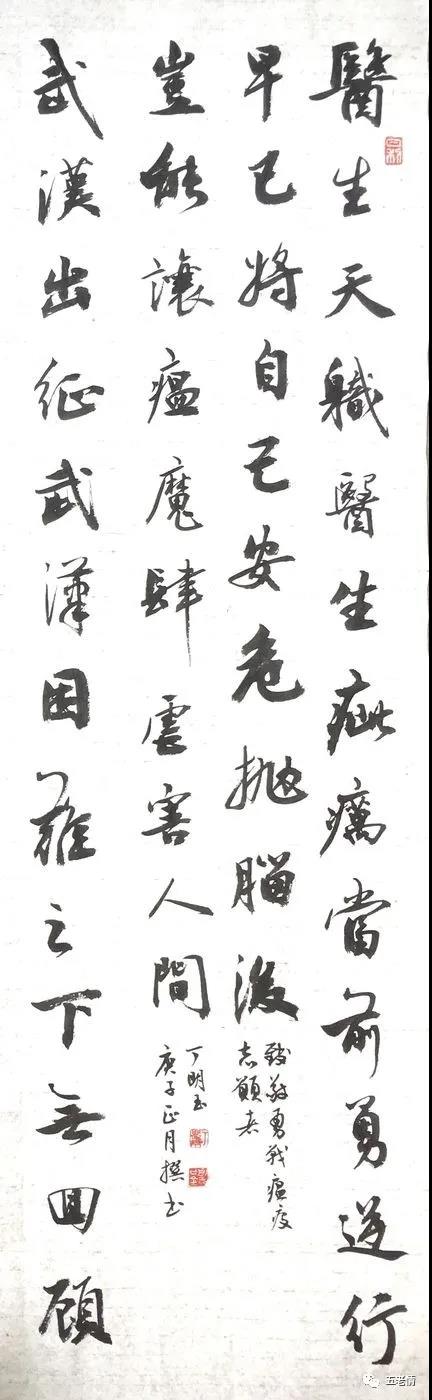 醫生天軄醫生疵癘當前勇逆行
早已將自己安危拋腦後
致敬勇戰瘟疫
志願者
武漢出征武漢困難之下無回顧
豈能讓瘟魔肆虐害人間
庚子正月撰书
丁明玉
五老情